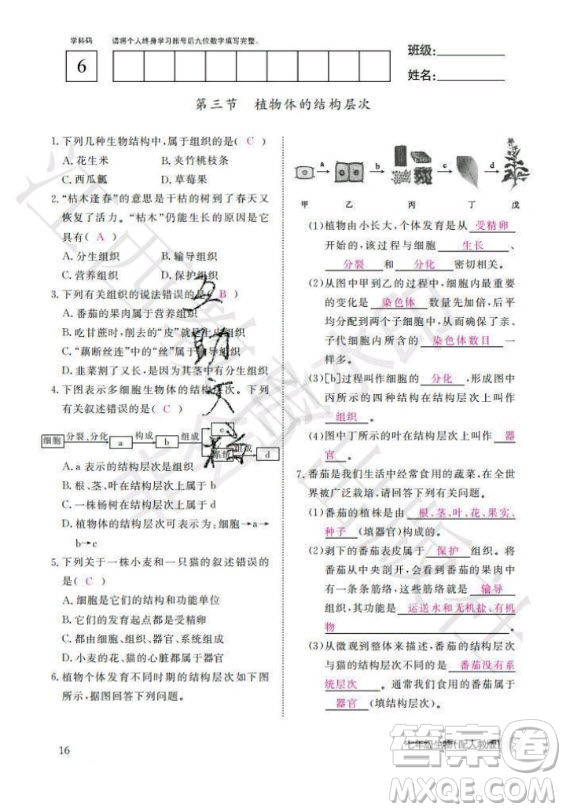 学科码 请将个人终身学习账号后九位数字填写完整。
6
班级:
姓名:
第三节 植物体的结构层次
1. 下列几种生物结构中,属于组织的是( C )
A. 花生米 B. 夹竹桃枝条
C. 西瓜瓤 D. 草莓果
2. “枯木逢春”的意思是干枯的树到了春天又
恢复了活力。“枯木”仍能生长的原因是它
具有( A )
A. 分生组织 B. 输导组织
C. 营养组织 D. 保护组织
3. 下列有关组织的说法错误的是( B )
A. 番茄的果肉属于营养组织
B. 吃甘蔗时,削去的“皮”就是输导组织
C. “藕断丝连”中的“丝”属于输导组织
D. 一般来说,植物的茎中有分生组织
4. 下图表示多细胞生物体的结构层次。下列
有关叙述错误的是( C )
细胞 分裂、分化 a 构成 b 组成 c 系统 组成 d
A. a表示的结构层次是组织
B. 根、茎、叶在结构层次上属于b
C. 一株杨树在结构层次上属于d
D. 植物体的结构层次可表示为:细胞→a→
b→c
5. 下列关于一株小麦和一只猫的叙述错误的
是( C )
A. 细胞是结构和功能单位
B. 它们的发育起点都是受精卵
C. 都由组织、器官、系统组成
D. 小麦的叶与猫的胃都是器官
6. 植物个体发育不同时期的结构层次如下图
所示,据图回答下列问题。
a b c d
甲 乙 丙 丁 戊
(1)植物由小长大,个体发育是从 受精卵
开始的,该过程与细胞 生长 、
分裂 和 分化 密切相关。
(2)从图中甲到乙的过程中,细胞内最重要
的变化是 染色体 数量先加倍,后平
均分配到两个子细胞中,从而保证了亲、
子代细胞内所含的 染色体 数目一致。
(3)[b]过程叫作细胞的 分化 ,形成图中
丙所示的四种结构在结构层次上叫作
组织 。
(4)图中丁所示的叶在结构层次上叫作 器
官 。
7. 番茄是我们生活中经常食用的蔬菜,在全世
界被广泛栽培。请回答下列有关问题。
(1)番茄的植株是由 根、茎、叶、花、果实、
种子 (填器官)构成的。
(2)剥下的番茄表皮属于 保护 组织。将
番茄从中央剖开,会看到番茄的果肉里
有一条条筋络,这些筋络是 输导
组织,其功能是 运送水和无机盐、有机物
。
(3)从微观到整体来描述,番茄的结构层次
与猫的结构层次不同的是 番茄没有系
统层次 ,我们所食用的番茄果实属于
器官 (填结构层次)。
16
七年级生物(配人教版)
答案圈